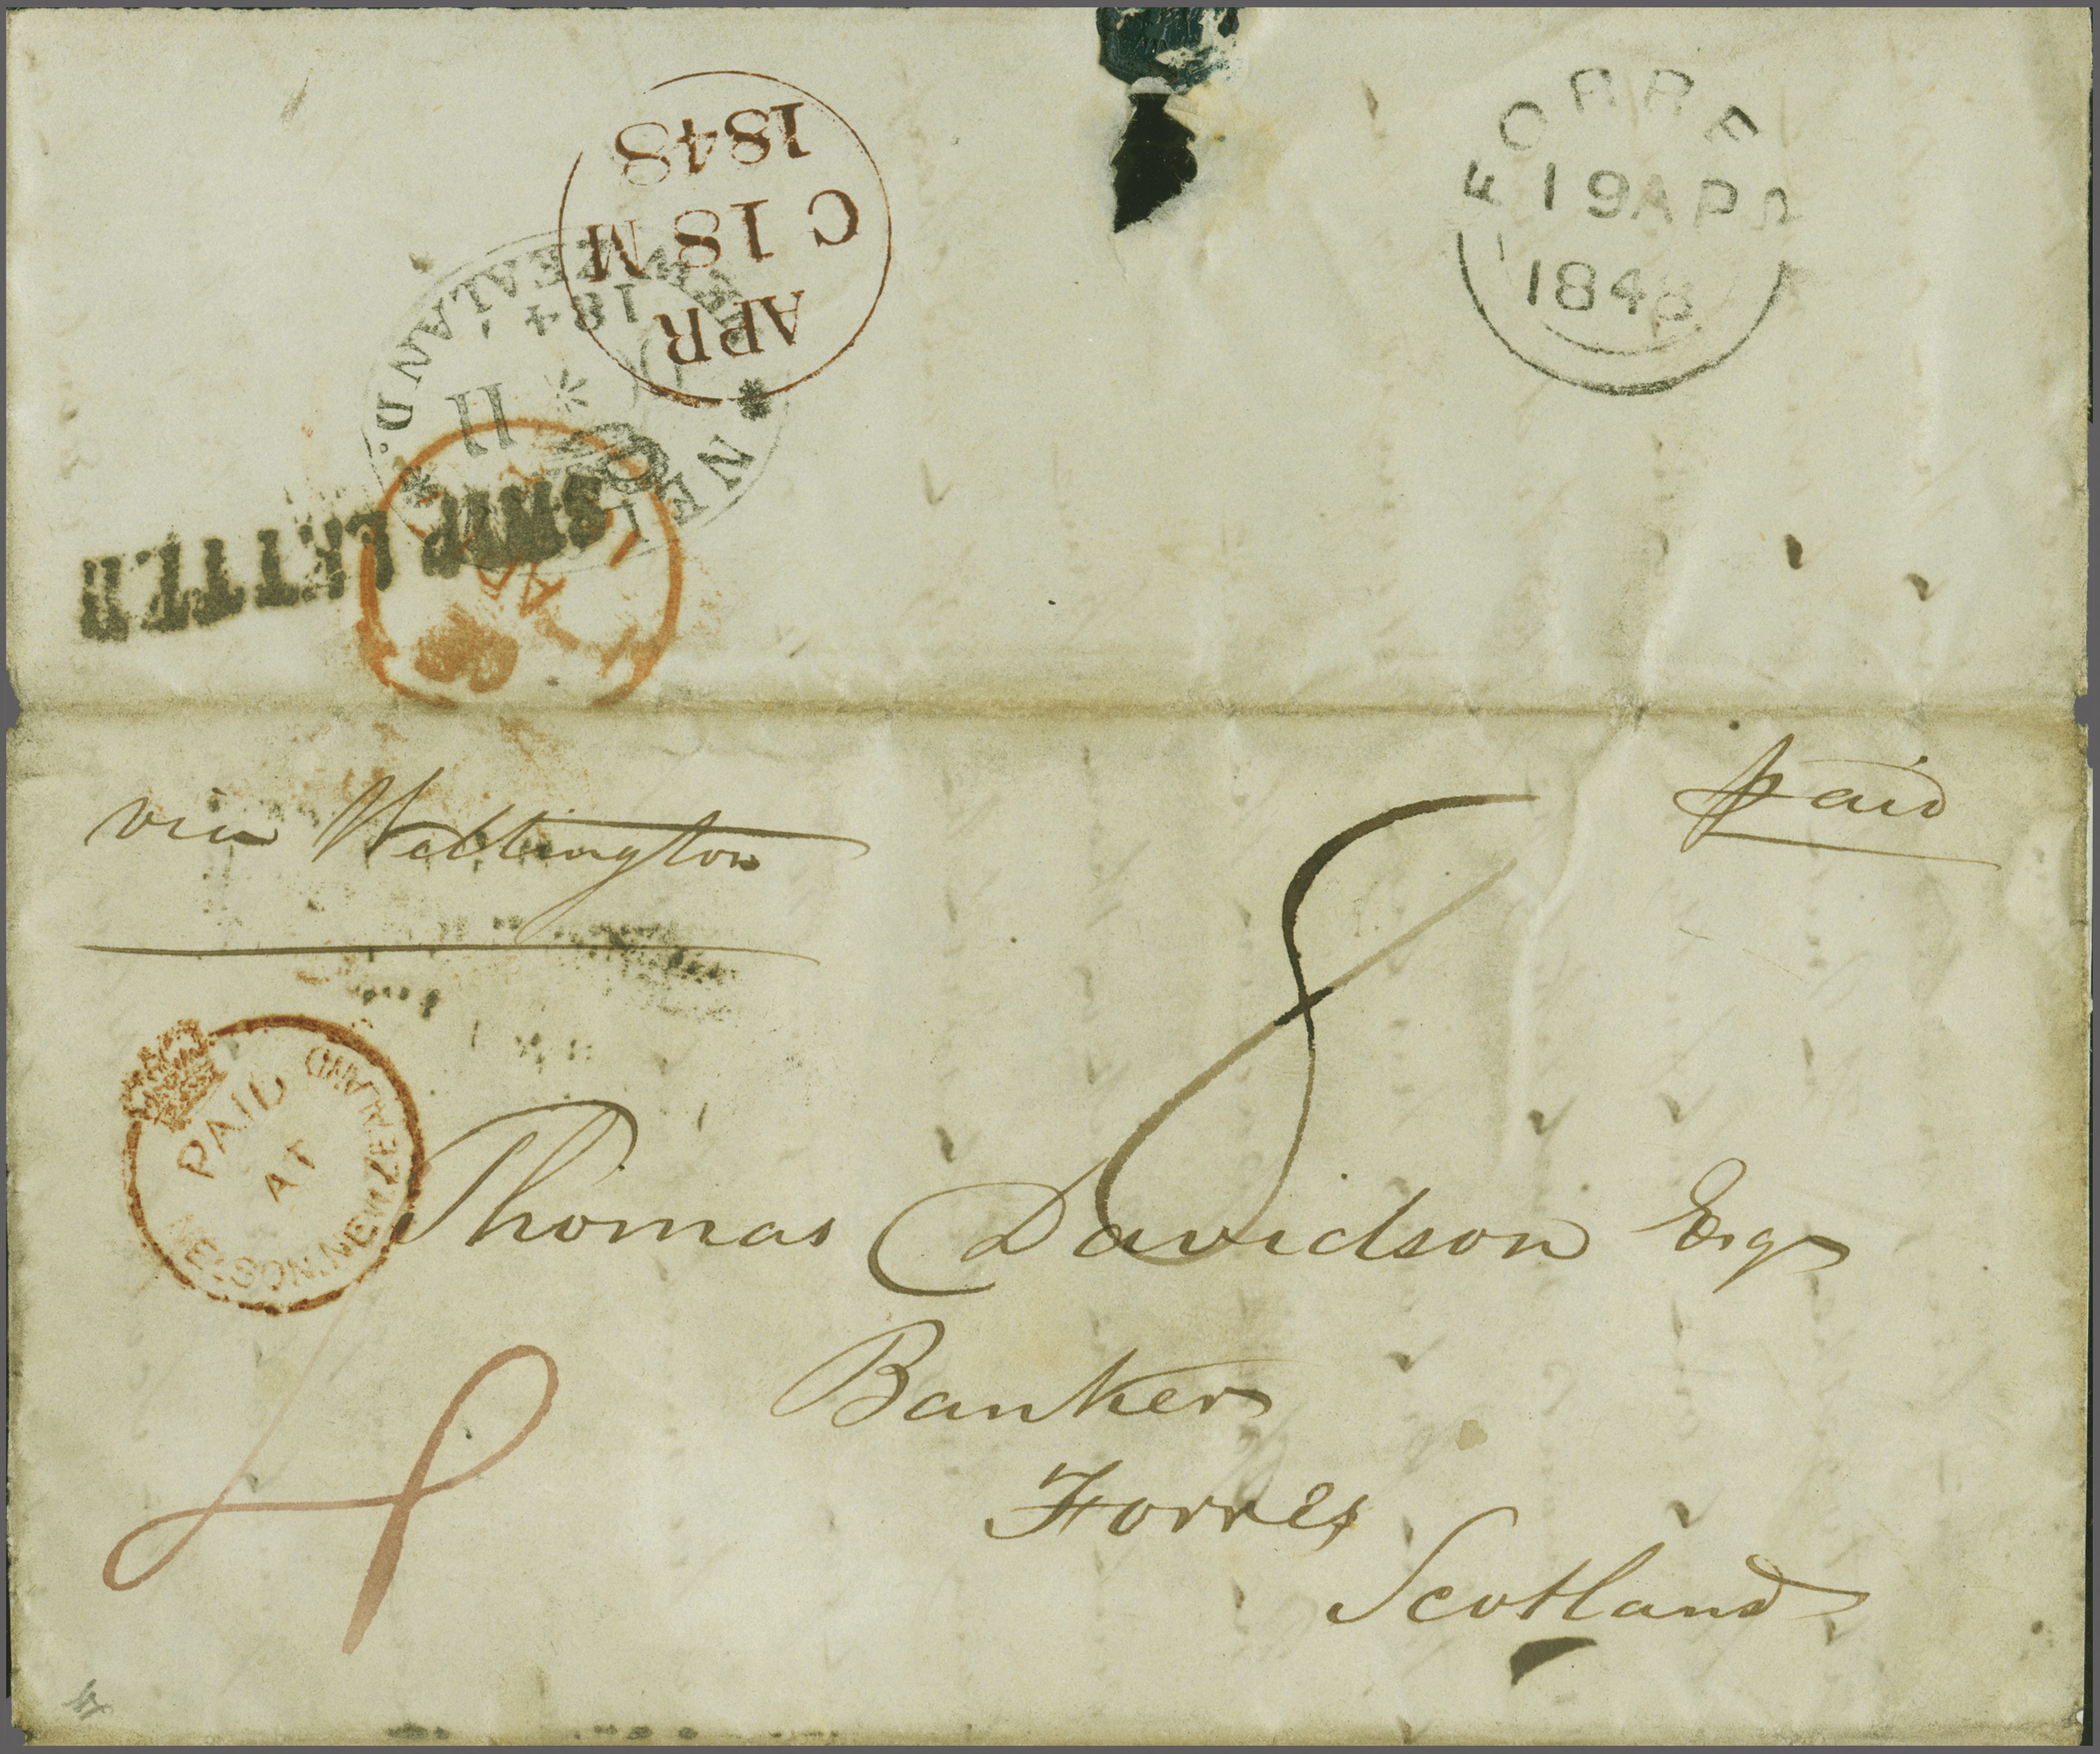 APR
C 18 M
1848
FORRE
19 APR
1848
NEW ZEALAND.
184
11
SHIP LETTER
via Wellington
paid
8
PAID
AT
NELSON. NEW ZEALAND
Thomas Davidson Esqr
Banker
Forres
Scotland
4